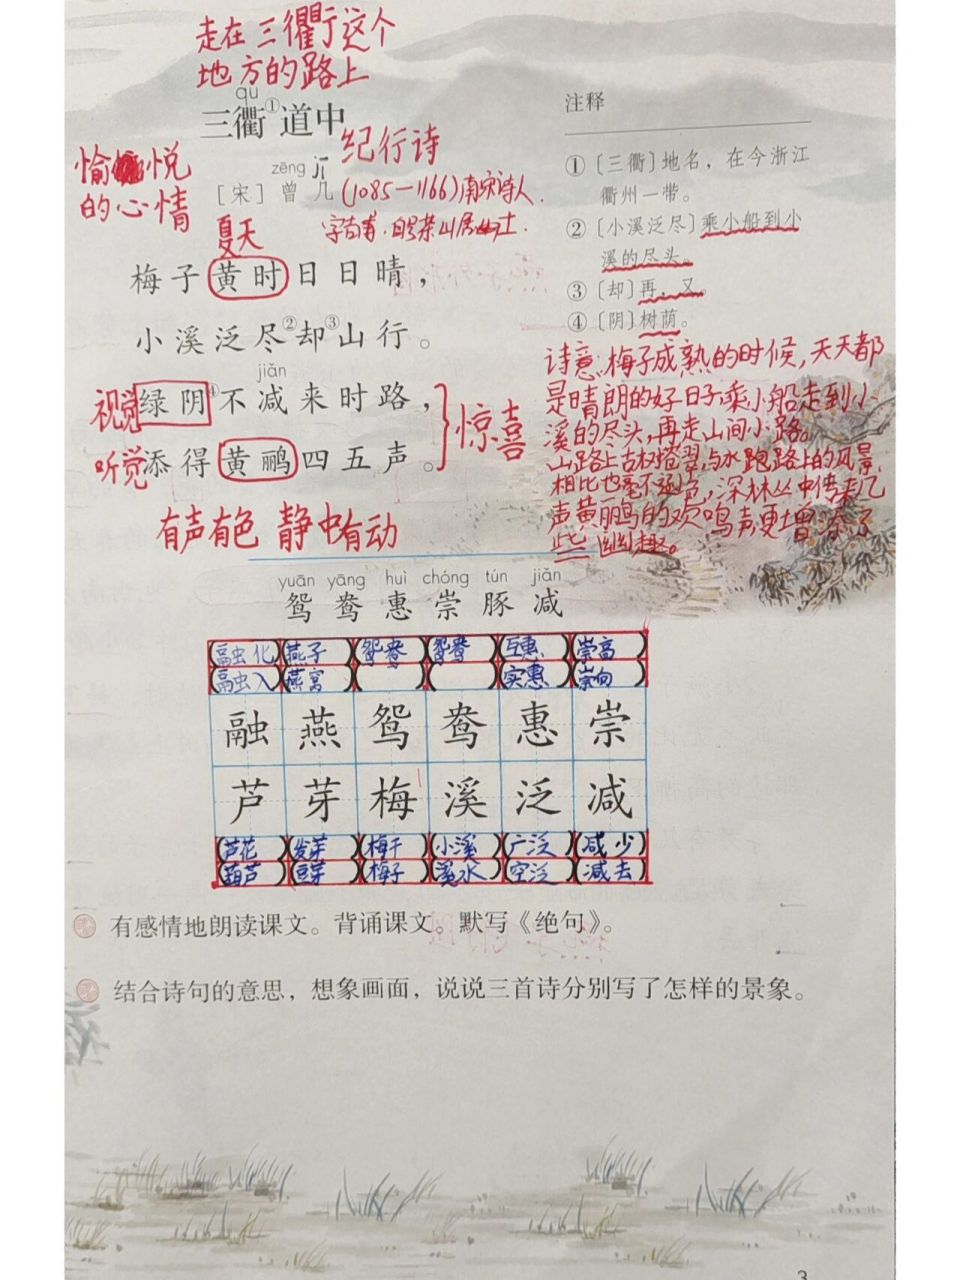 走在三衢这个
地方的路上
qú
三衢①道中
纪行诗
愉悦
的心情
zēng jī
［宋］曾几(1085—1166)南宋诗人.
字吉甫.自号茶山居士.
夏天
梅子黄时日日晴，
小溪泛尽②却③山行。
jiǎn
视觉 绿阴④不减来时路，
听觉 添得黄鹂四五声。
惊喜
有声有色 静中有动
注释
①〔三衢〕地名，在今浙江
衢州一带。
②〔小溪泛尽〕乘小船到小
溪的尽头。
③〔却〕再，又。
④〔阴〕树荫。
诗意:梅子成熟的时候,天天都
是晴朗的好日子,乘小船走到小
溪的尽头,再走山间小路。
山路上古树苍翠,与水路上的风景
相比也毫不逊色,深林丛中传来几
声黄鹂的欢鸣声,更增添了
些幽趣。
yuān yāng huì chóng tún jiǎn
鸳 鸯 惠 崇 豚 减
(融化)(燕子)(鸳鸯)(鸳鸯)(互惠)(崇高)
(融入)(燕窝)( )( )(实惠)(崇尚)
融 燕 鸳 鸯 惠 崇
芦 芽 梅 溪 泛 减
(芦花)(发芽)(梅干)(小溪)(广泛)(减少)
(葫芦)(豆芽)(梅子)(溪水)(空泛)(减去)
有感情地朗读课文。背诵课文。默写《绝句》。
结合诗句的意思，想象画面，说说三首诗分别写了怎样的景象。
3